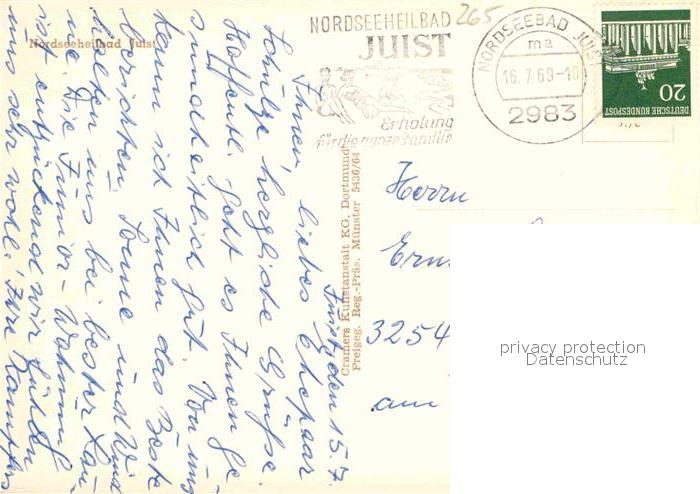 Nordseeheilbad Juist
NORDSEEHEILBAD
JUIST
Erholung
für die ganze Familie
265
NORDSEEBAD JUIST
ma
16.7.69-10
2983
DEUTSCHE BUNDESPOST
20
Cramers Kunstanstalt KG. Dortmund
Freigeg. Reg.-Präs. Münster 5436/64
Juist, den 15.7.
Ihnen, liebes Ehepaar
Schulze herzliche Grüße.
Hoffentl. geht es Ihnen ge-
sundheitlich gut. Von uns
kann ich Ihnen das Beste
berichten. Sonne und Wind
halten uns bei bester Lau-
ne. Die Junior-Wohnung
ist entzückend, wir fühlen
uns sehr wohl. Ihre
Herrn
3254
am
privacy protection
Datenschutz